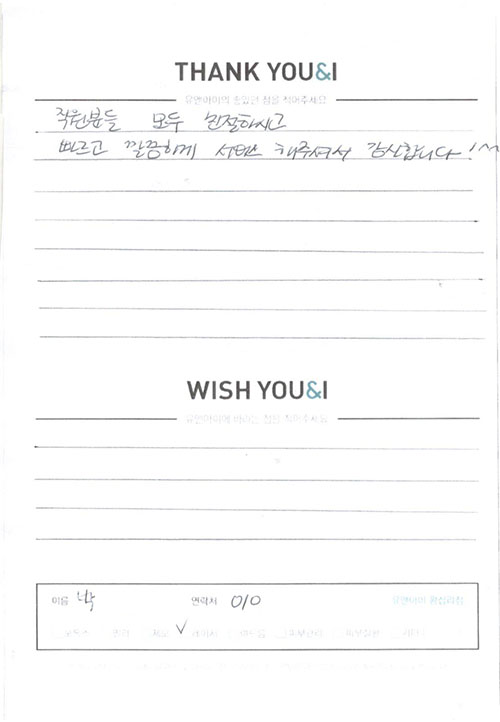 THANK YOU&I
유앤아이의 좋았던 점을 적어주세요
직원분들 모두 친절하시고
빠르고 깔끔하게 서비스 해주셔서 감사합니다!^^
WISH YOU&I
유앤아이에 바라는 점을 적어주세요
이름 박 연락처 010 유앤아이 왕십리점
제모 ✓ 레이저 피부관리